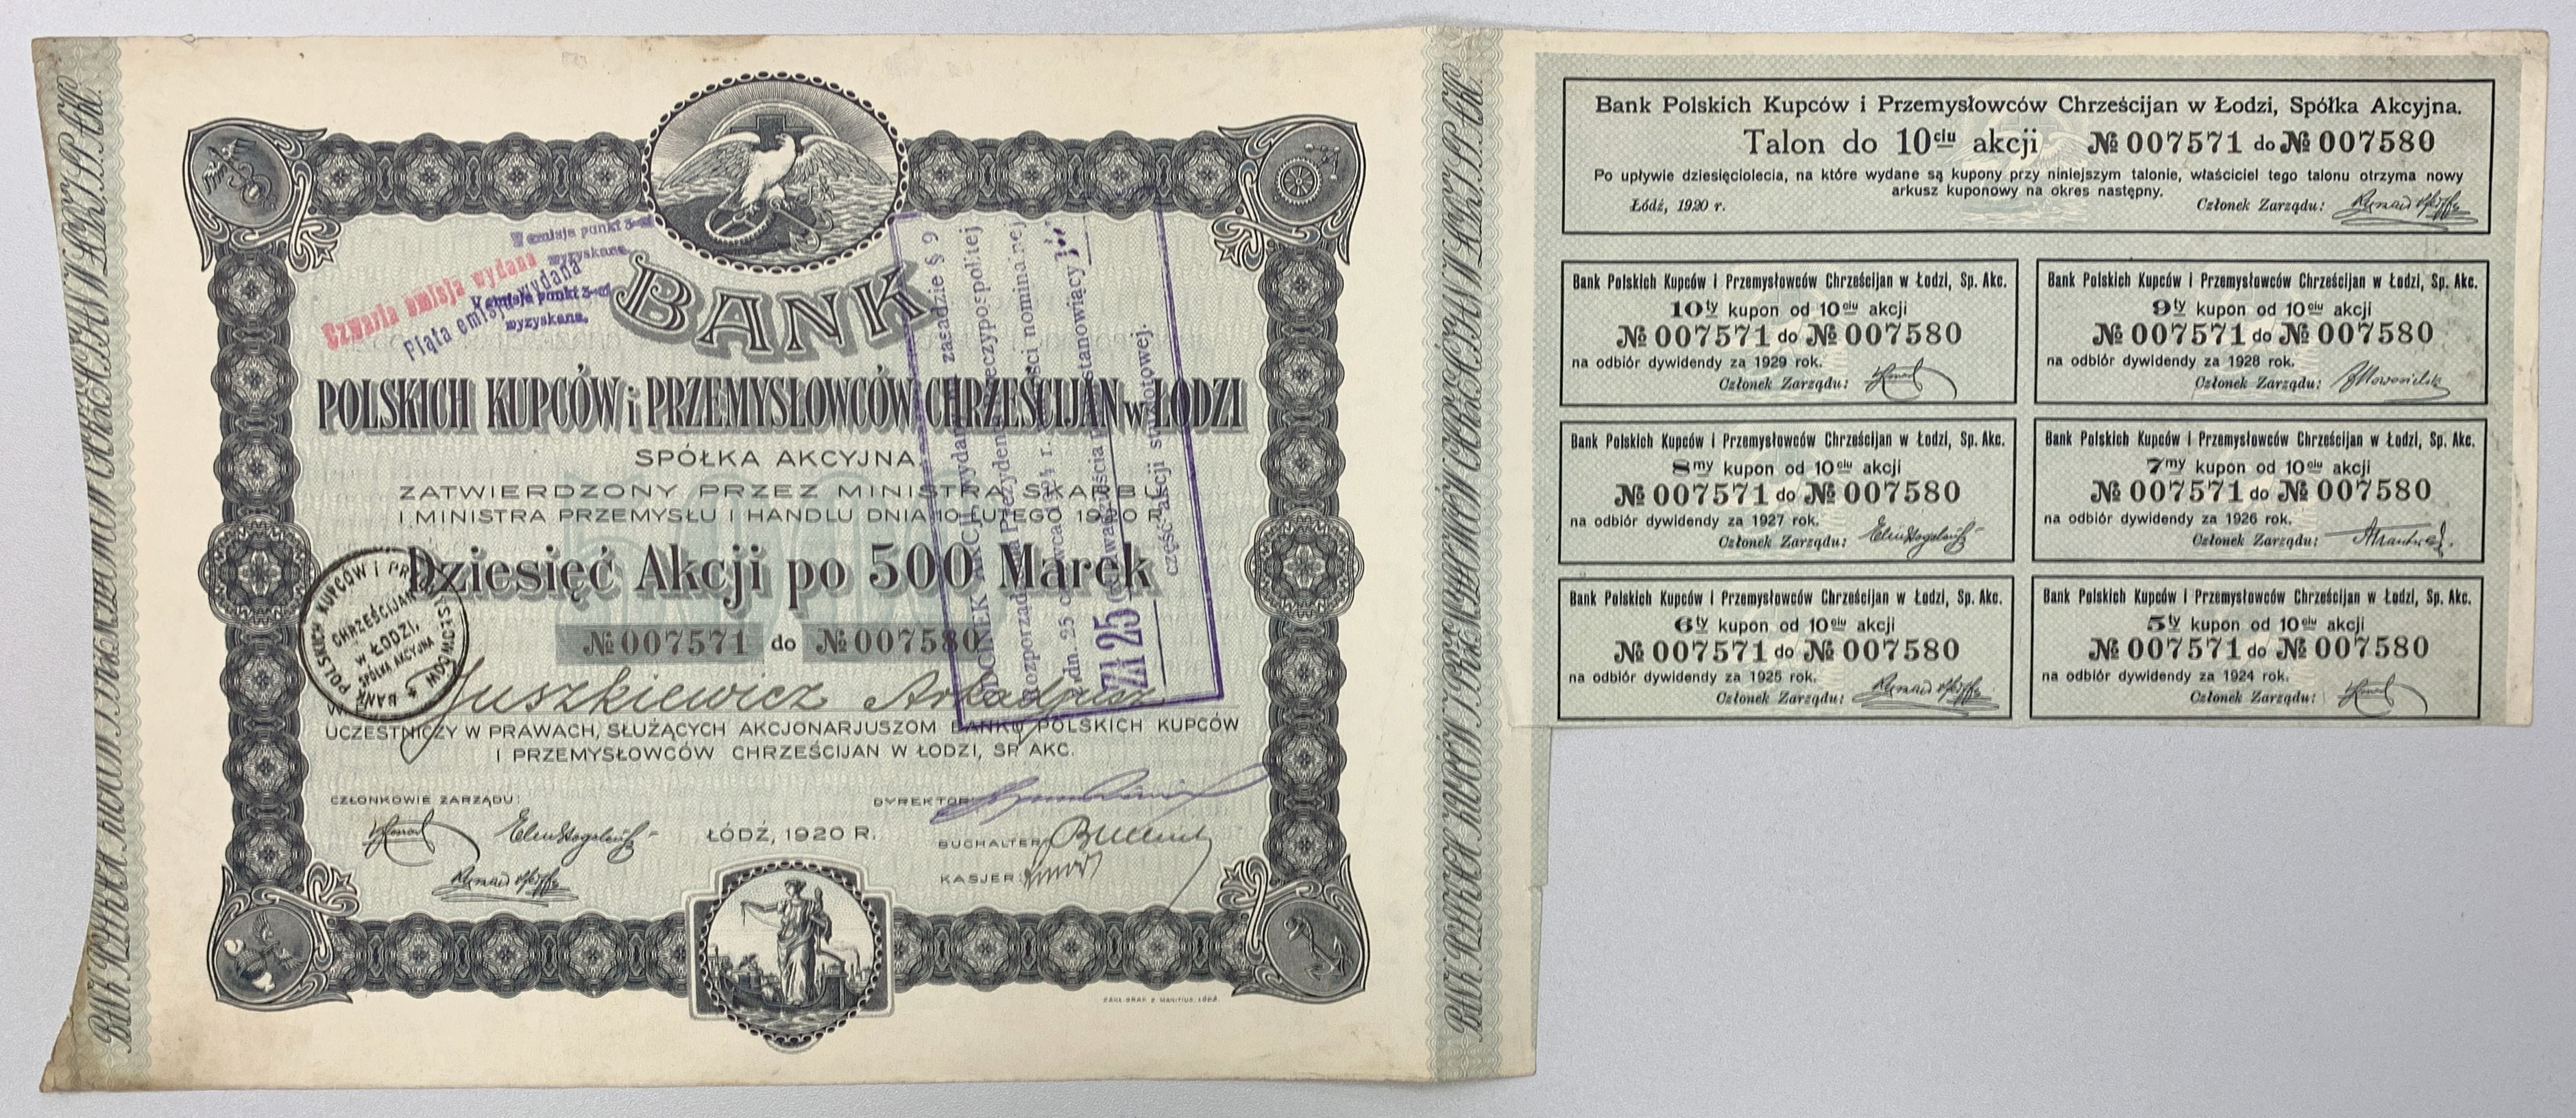 BANK POLSKICH KUPCÓW i PRZEMYSŁOWCÓW CHRZEŚCIJAN w ŁODZI, SP. AKC.
W emisję punkt 3-ci
wyzyskane.
Czwarta emisja wydana
Piąta emisja wydana
W emisję punkt 3-ci
wyzyskane.
BANK
POLSKICH KUPCÓW i PRZEMYSŁOWCÓW CHRZEŚCIJAN w ŁODZI
SPÓŁKA AKCYJNA
ZATWIERDZONY PRZEZ MINISTRA SKARBU
I MINISTRA PRZEMYSŁU I HANDLU DNIA 10 LUTEGO 1920 R.
Dziesięć Akcji po 500 Marek
№ 007571 do № 007580
Juszkiewicz Arkadjusz
UCZESTNICZY W PRAWACH, SŁUŻĄCYCH AKCJONARJUSZOM BANKU POLSKICH KUPCÓW
I PRZEMYSŁOWCÓW CHRZEŚCIJAN W ŁODZI, SP. AKC.
CZŁONKOWIE ZARZĄDU:
DYREKTOR:
ŁÓDŹ, 1920 R.
BUCHALTER:
KASJER:
ZAKŁ. GRAF. Z. MANITIUS, ŁÓDŹ.
BANK POLSKICH KUPCÓW I PRZEMYSŁOWCÓW
CHRZEŚCIJAN
w ŁODZI,
SPÓŁKA AKCYJNA
ODCINEK AKCJI wydany na zasadzie § 9
Rozporządzenia Prezydenta Rzeczypospolitej
z dn. 25 czerwca 1924 r. wartości nominalnej
Zł 25 stanowiący
część akcji stuzłotowej.
BANK POLSKICH KUPCÓW i PRZEMYSŁOWCÓW CHRZEŚCIJAN w ŁODZI, SP. AKC.
Bank Polskich Kupców i Przemysłowców Chrześcijan w Łodzi, Spółka Akcyjna.
Talon do 10ciu akcji № 007571 do № 007580
Po upływie dziesięciolecia, na które wydane są kupony przy niniejszym talonie, właściciel tego talonu otrzyma nowy
arkusz kuponowy na okres następny.
Łódź, 1920 r. Członek Zarządu:
Bank Polskich Kupców i Przemysłowców Chrześcijan w Łodzi, Sp. Akc.
10ty kupon od 10ciu akcji
№ 007571 do № 007580
na odbiór dywidendy za 1929 rok.
Członek Zarządu:
Bank Polskich Kupców i Przemysłowców Chrześcijan w Łodzi, Sp. Akc.
9ty kupon od 10ciu akcji
№ 007571 do № 007580
na odbiór dywidendy za 1928 rok.
Członek Zarządu:
Bank Polskich Kupców i Przemysłowców Chrześcijan w Łodzi, Sp. Akc.
8my kupon od 10ciu akcji
№ 007571 do № 007580
na odbiór dywidendy za 1927 rok.
Członek Zarządu:
Bank Polskich Kupców i Przemysłowców Chrześcijan w Łodzi, Sp. Akc.
7my kupon od 10ciu akcji
№ 007571 do № 007580
na odbiór dywidendy za 1926 rok.
Członek Zarządu:
Bank Polskich Kupców i Przemysłowców Chrześcijan w Łodzi, Sp. Akc.
6ty kupon od 10ciu akcji
№ 007571 do № 007580
na odbiór dywidendy za 1925 rok.
Członek Zarządu:
Bank Polskich Kupców i Przemysłowców Chrześcijan w Łodzi, Sp. Akc.
5ty kupon od 10ciu akcji
№ 007571 do № 007580
na odbiór dywidendy za 1924 rok.
Członek Zarządu: